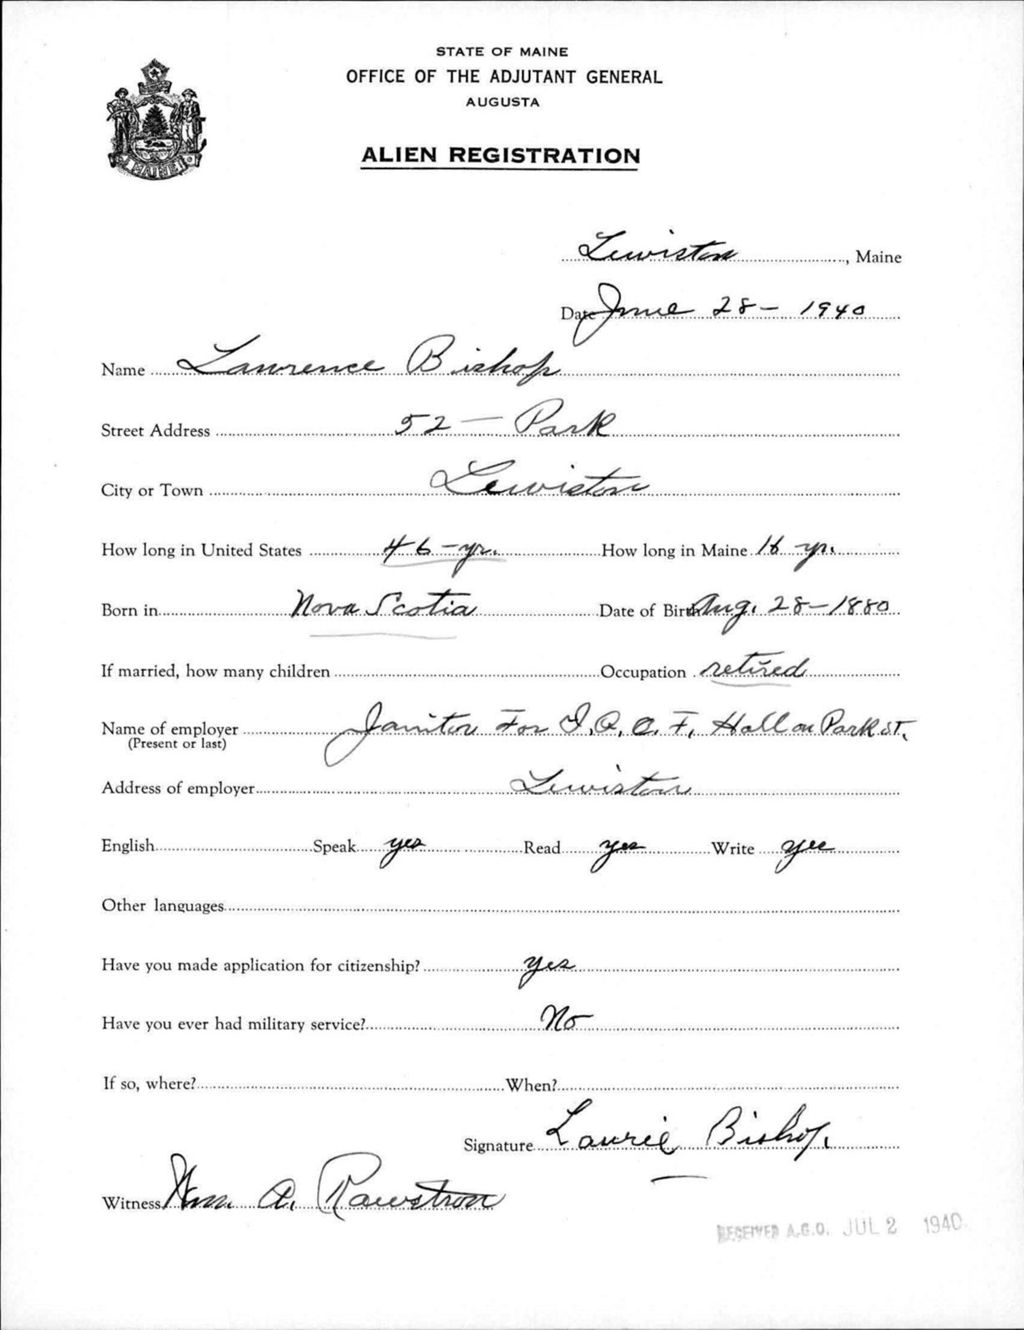 STATE OF MAINE
OFFICE OF THE ADJUTANT GENERAL
AUGUSTA
ALIEN REGISTRATION
MAINE
Lewiston, Maine
Date June 28 - 1940
Name Lawrence Bishop
Street Address 52 — Park
City or Town Lewiston
How long in United States 46 - yr. How long in Maine 16 - yr.
Born in Nova Scotia Date of Birth Aug. 28 - 1880
If married, how many children Occupation retired
Name of employer Janitor For I.O.O.F. Hall on Park st.
(Present or last)
Address of employer Lewiston
English Speak yes Read yes Write yes
Other languages
Have you made application for citizenship? yes
Have you ever had military service? No
If so, where? When?
Signature Laurie Bishop.
Witness Wm. A. Rawstron
RECEIVED A.G.O. JUL 2 1940